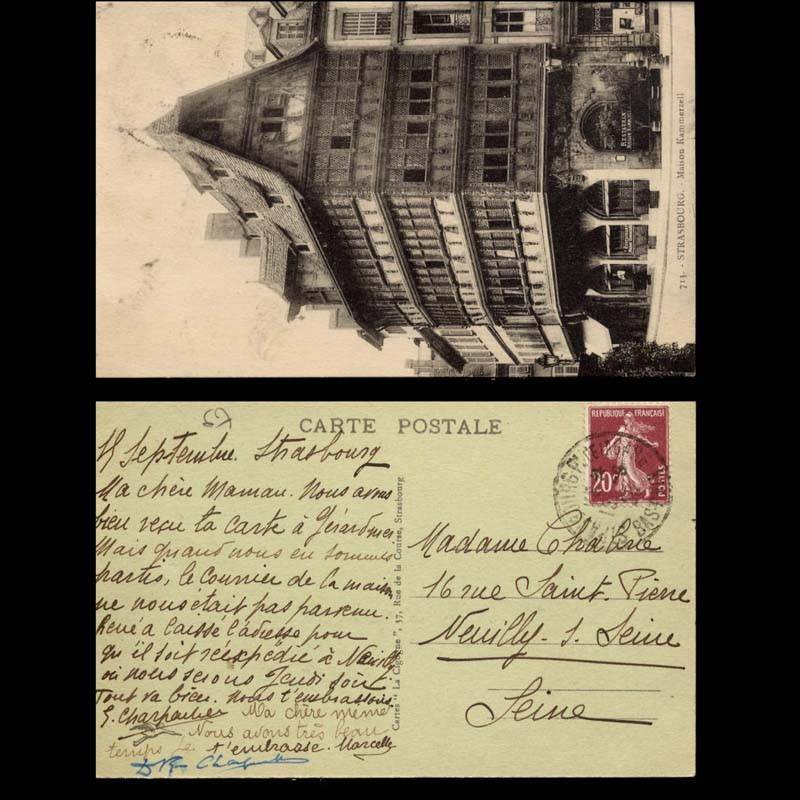 713. - STRASBOURG. - Maison Kammerzell
RESTAURAN
CARTE POSTALE
REPUBLIQUE FRANÇAISE
20c
POSTES
Cartes "La Cigogne", 37, Rue de la Course, Strasbourg
15 Septembre. Strasbourg
Ma chère Maman. Nous avons
bien reçu ta carte à Gérardmer
Mais quand nous en sommes
partis, le courrier de la maison
ne nous était pas parvenu.
René a laissé l'adresse pour
qu'il soit réexpédié à Neuilly
où nous serons Jeudi soir.
Tout va bien. Nous t'embrassons
G. Charpentier
Ma chère mémé
Nous avons très beau
temps Je t'embrasse. Marcelle
Madame
16 rue Saint. Pierre
Neuilly. s. Seine
Seine